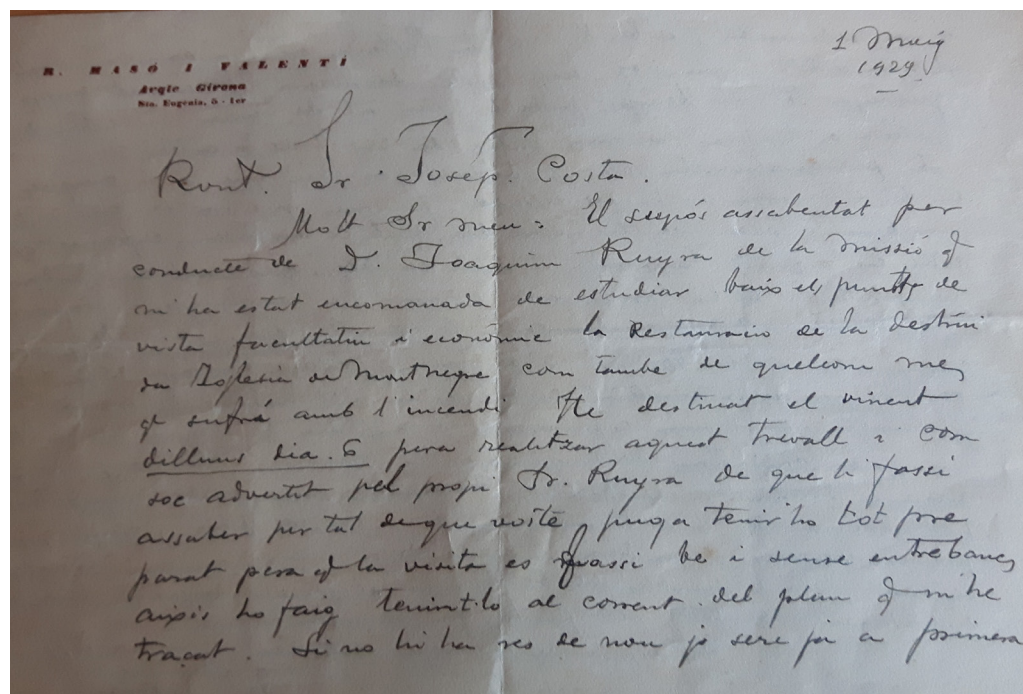 R. MASÓ I VALENTÍ
Arqte Girona
Sta. Eugenia, 6 - 1er
1 Maig
1929
Rvnt. Sr. Josep Costa.
Molt Sr meu: El supós assabentat per
conducte de D. Joaquim Ruyra de la missió q
m'ha estat encomanada de estudiar baix els punts de
vista facultatiu i econòmic la Restauracio de la destrui
da Iglesia de Montnegre com tambe de quelcom mes
q sufrá amb l'incendi He destinat el vinent
dilluns dia. 6 pera realitzar aquest trevall i com
soc advertit pel propi Sr. Ruyra de que li fassi
assaber per tal de que voste puga tenirho tot pre
parat pera q la visita es fassi be i sense entrebancs
aixis ho faig tenint-lo al corrent del plan q m'he
traçat. Si no hi ha res de nou jo sere ja a primera